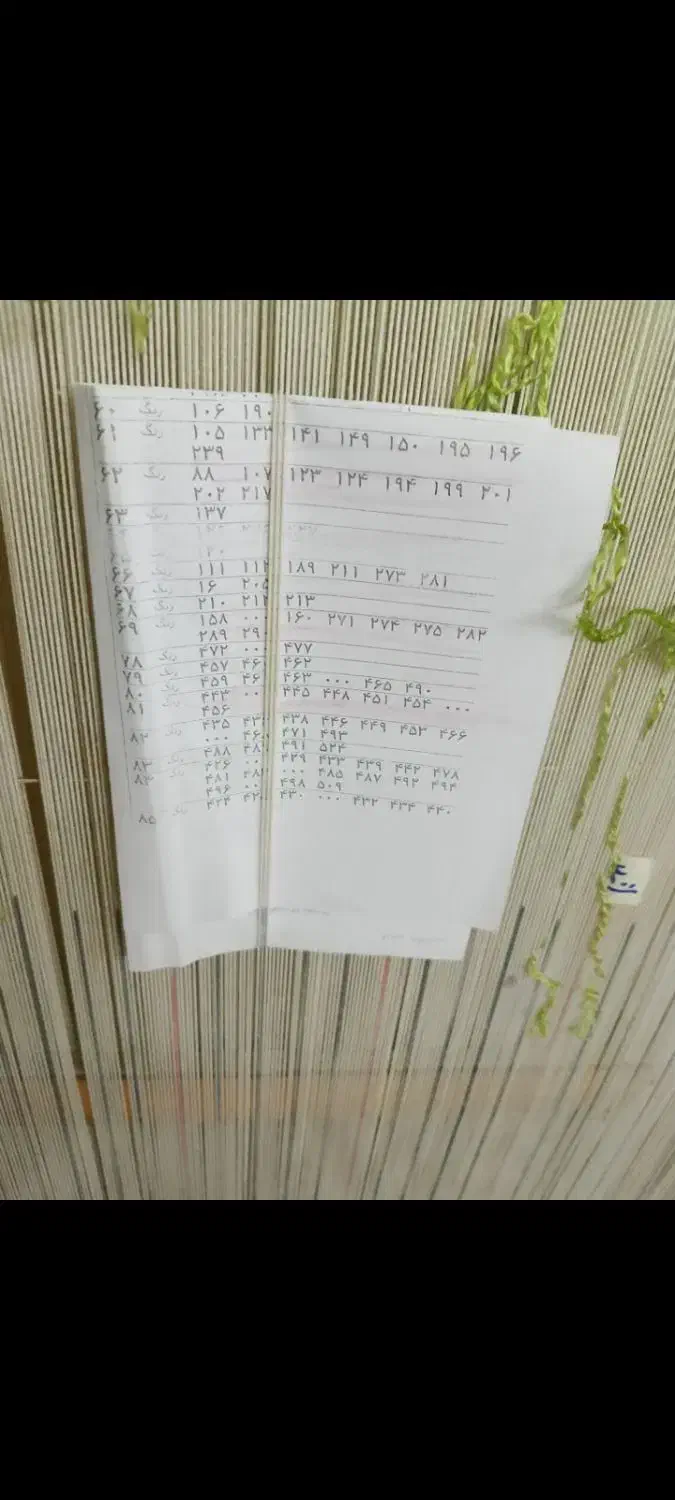 ۶۰ رنگ ۱۰۶ ۱۹۰
۶۱ رنگ ۱۰۵ ۱۳۳ ۱۴۱ ۱۴۹ ۱۵۰ ۱۹۵ ۱۹۶
۲۳۹
۶۲ رنگ ۸۸ ۱۰۷ ۱۲۳ ۱۲۴ ۱۹۴ ۱۹۹ ۲۰۱
۲۰۲ ۲۱۷
۶۳ رنگ ۱۳۷
۶۶ رنگ ۱۱۱ ۱۱۲ ۱۸۹ ۲۱۱ ۲۷۳ ۲۸۱
۶۷ رنگ ۱۶ ۲۰۵
۶۸ رنگ ۲۱۰ ۲۱۲ ۲۱۳
۶۹ رنگ ۱۵۸ ... ۱۶۰ ۲۷۱ ۲۷۴ ۲۷۵ ۲۸۲
۲۸۹ ۲۹۰
۷۸ رنگ ۴۷۲ ... ۴۷۷
۷۹ رنگ ۴۵۷ ۴۶۲
۸۰ رنگ ۴۵۹ ۴۶۳ ... ۴۶۵ ۴۹۰
۸۱ رنگ ۴۴۳ ... ۴۴۵ ۴۴۸ ۴۵۱ ۴۵۴ ...
۴۵۶
۸۲ رنگ ۴۳۵ ۴۳۸ ۴۴۶ ۴۴۹ ۴۵۳ ۴۶۶
... ۴۷۱ ۴۹۳
۸۳ رنگ ۴۸۸ ۴۹۱ ۵۲۴
رنگ ۴۲۶ ... ۴۲۹ ۴۳۳ ۴۳۹ ۴۴۲ ۴۷۸
۴۸۱ ... ۴۸۵ ۴۸۷ ۴۹۲ ۴۹۴
۴۹۶ ... ۴۹۸ ۵۰۹
۸۵ رنگ ۴۲۴ ۴۳۰ ... ۴۳۲ ۴۳۴ ۴۴۰